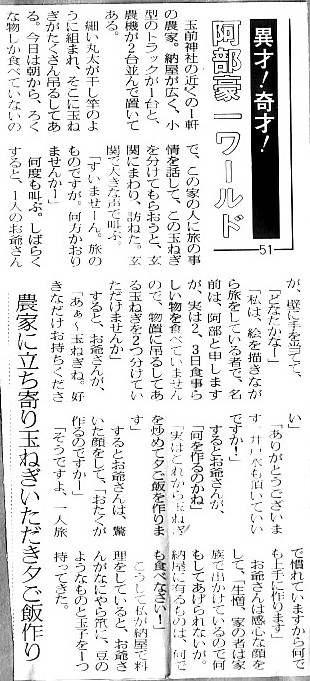 異才!奇才!
阿部豪一ワールド
51
玉前神社の近くの一軒
の農家。納屋が広く、小
型のトラックが1台と、
農機が2台並んで置いて
ある。
細い丸太が干し竿のよ
うに組まれ、そこに玉ね
ぎがたくさん吊るしてあ
る。今日は朝から、ろく
な物しか食べていないの
で、この家の人に旅の事
情を話して、この玉ねぎ
を分けてもらおうと、玄
関にまわり、訪ねた。玄
関で大きな声で叫ぶ。
「すいませーん。旅の
ものですが。何方かおり
ませんかー」
何度も叫ぶ。しばらく
すると、1人のお爺さん
が、壁に手を当てて、
「どなたかなー」
「私は、絵を描きなが
ら旅をしている者で、名
前は、阿部と申します
が、実は2、3日食事ら
しい物を食べていません
ので、物置に吊るしてあ
る玉ねぎを2つ分けてい
ただけませんか」
すると、お爺さんが、
「あぁ〜玉ねぎね。好
きなだけお持ちくださ
い」
「ありがとうございま
す。井戸水も頂いていい
ですか!」
するとお爺さんが、
「何を作るのかね」
「実はこれから玉ねぎ
を炒めて夕ご飯を作りま
す」
するとお爺さんは、驚
いた顔をして、「おたくが
作るのですかー」
「そうですよ、一人旅
で慣れていますから何で
も上手に作ります」
お爺さんは感心な顔を
して、「生憎、家の者は家
族で出かけているので何
もしてあげられないが。
納屋に有るものは、何で
も食べなさい!」
こうして私が納屋で料
理をしていると、お爺さ
んがなにやら爪に、豆の
ようなものと玉子を一つ
持ってきた。
農家に立ち寄り玉ねぎいただき夕ご飯作り